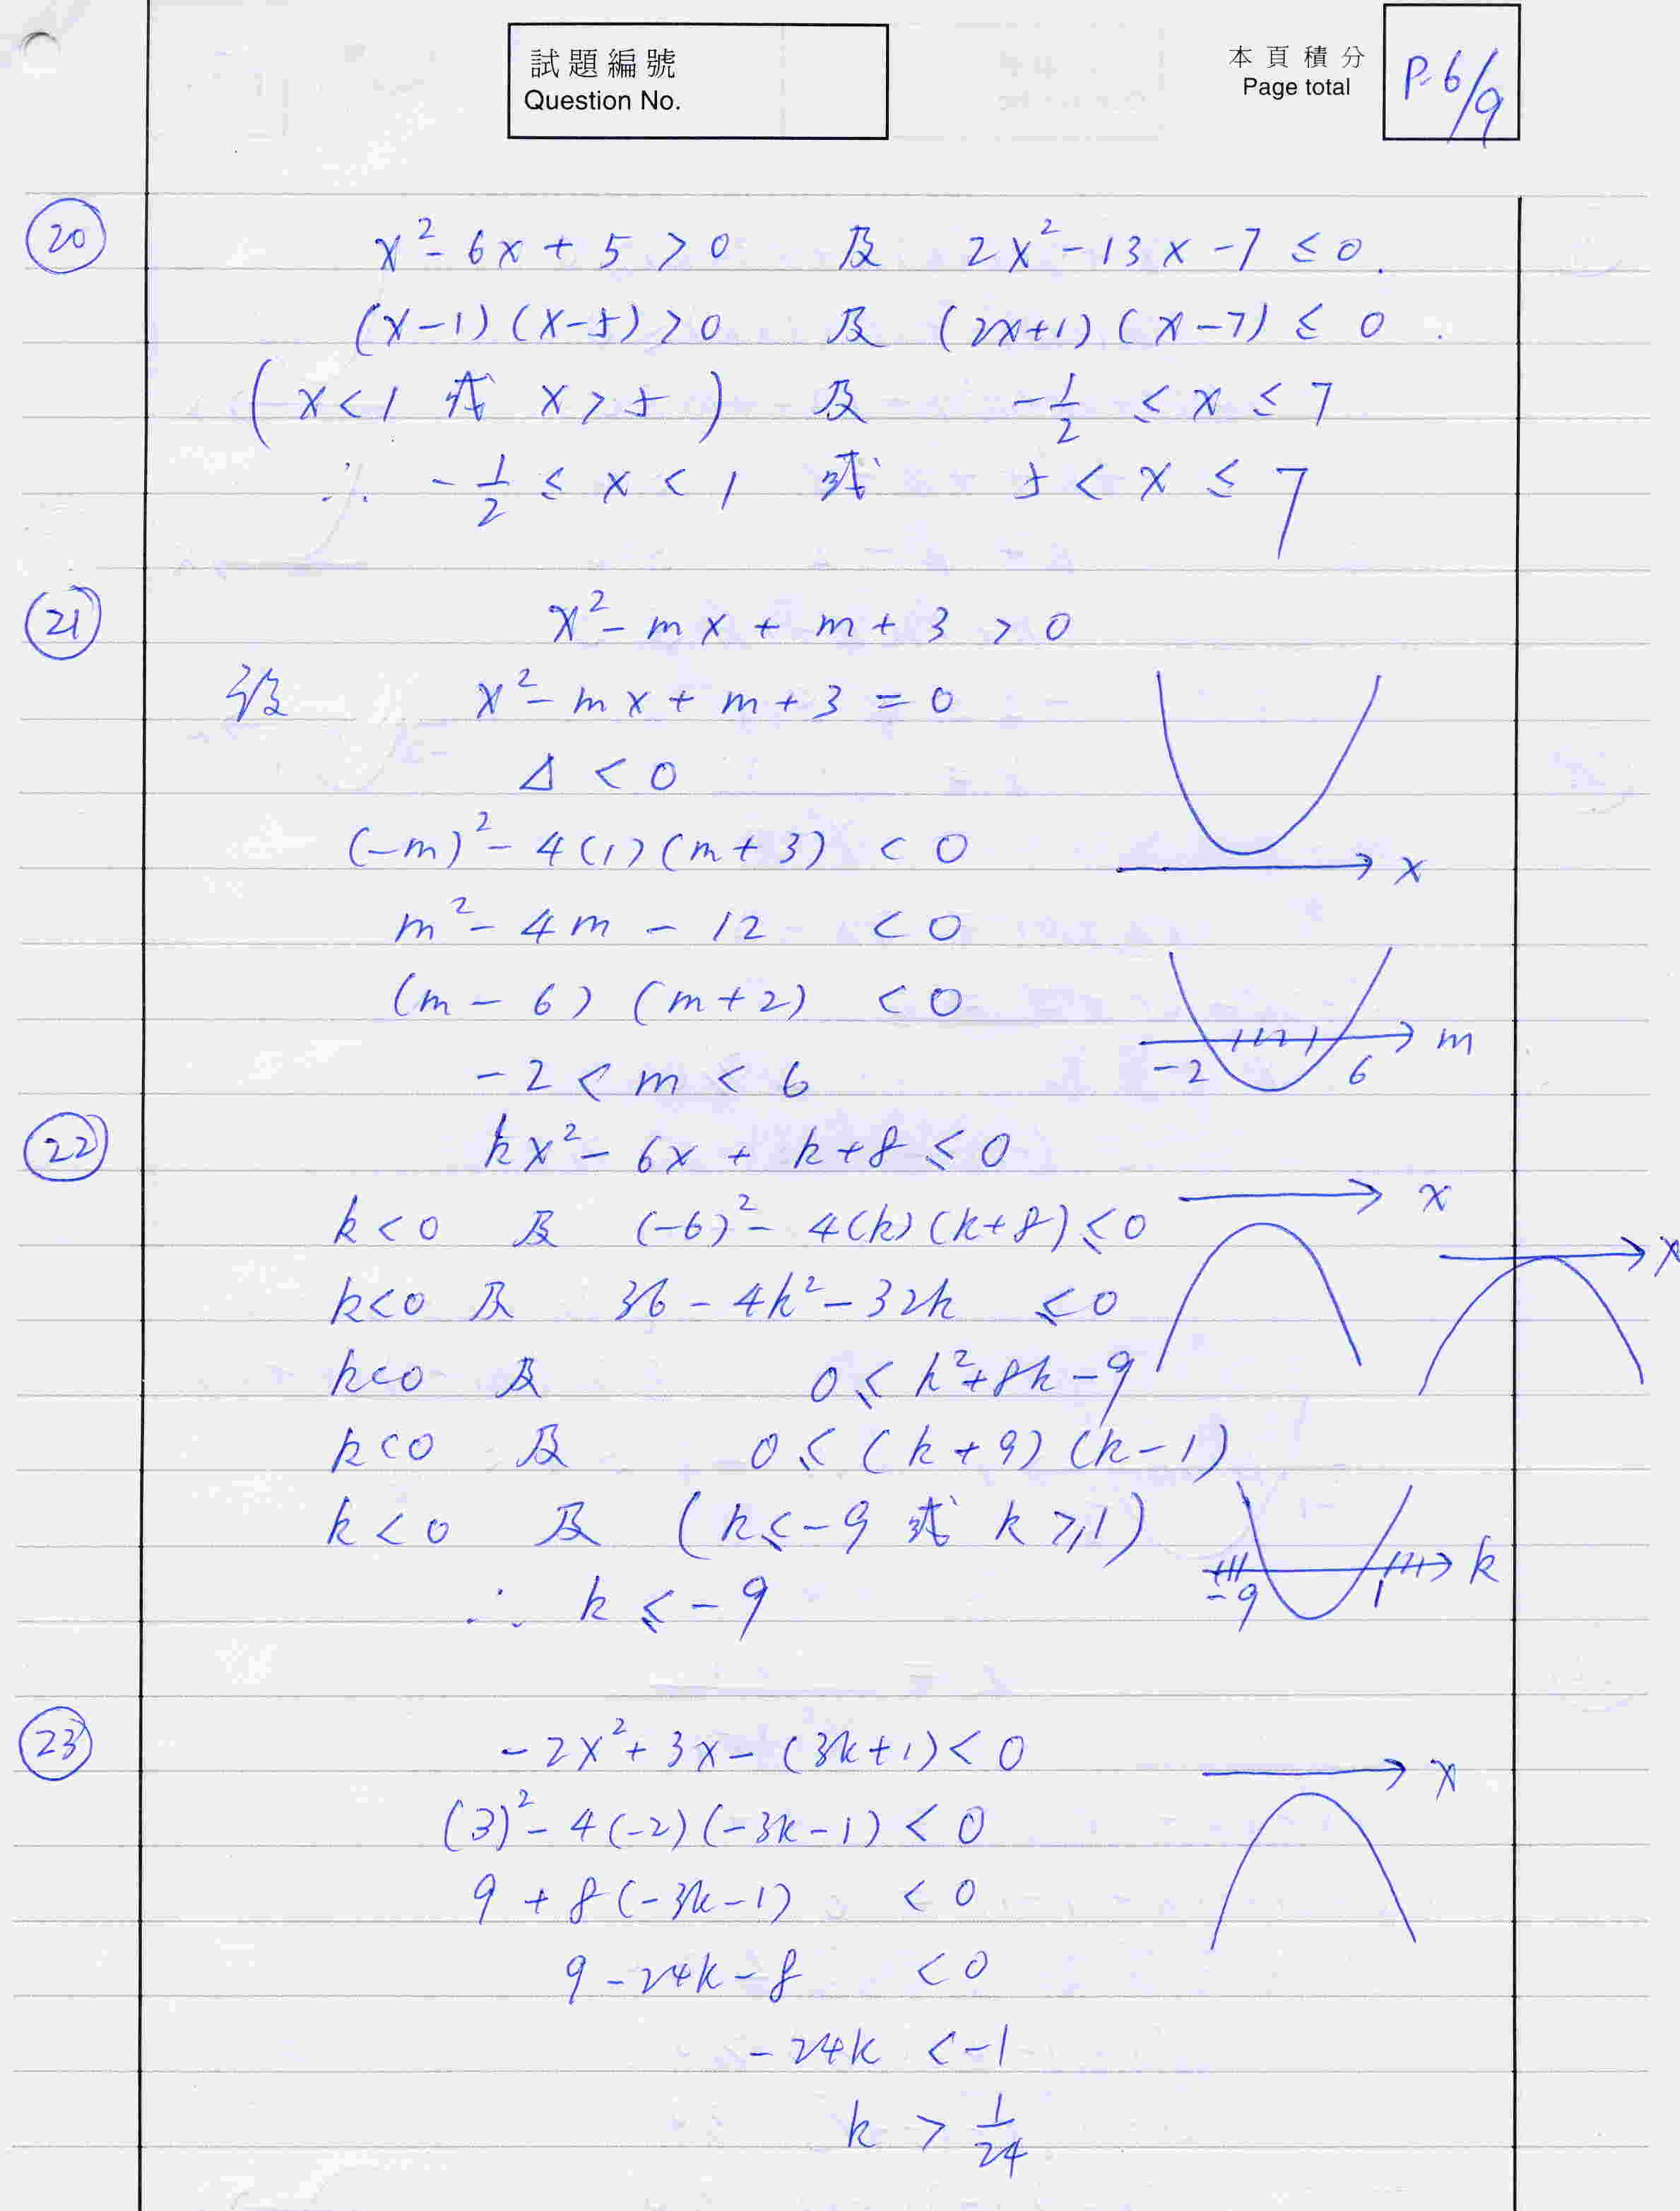 試題編號
Question No.
本頁積分
Page total
P.6/9
⑳
x² - 6x + 5 > 0 及 2x² - 13x - 7 ≤ 0.
(x-1)(x-5) > 0 及 (2x+1)(x-7) ≤ 0.
(x < 1 或 x > 5) 及 -1/2 ≤ x ≤ 7
∴ -1/2 ≤ x < 1 或 5 < x ≤ 7
㉑
x² - mx + m + 3 > 0
設 x² - mx + m + 3 = 0
Δ < 0
(-m)² - 4(1)(m+3) < 0
x
m² - 4m - 12 < 0
(m - 6)(m+2) < 0
m
-2 6
-2 < m < 6
㉒
kx² - 6x + k+8 ≤ 0
x
k < 0 及 (-6)² - 4(k)(k+8) ≤ 0
x
k<0 及 36 - 4k² - 32k ≤ 0
k<0 及 0 ≤ k²+8k-9
k<0 及 0 ≤ (k+9)(k-1)
k < 0 及 (k ≤ -9 或 k ≥ 1)
k
-9 1
∴ k ≤ -9
㉓
-2x² + 3x - (3k+1) < 0
x
(3)² - 4(-2)(-3k-1) < 0
9 + 8(-3k-1) < 0
9 - 24k - 8 < 0
-24k < -1
k > 1/24